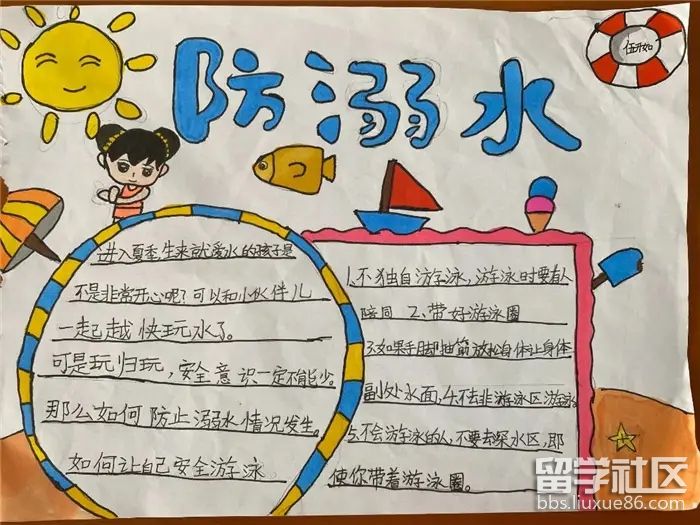 防溺水
伍开如
进入夏季,生来就爱水的孩子是
不是非常开心呢?可以和小伙伴儿
一起起越快玩水了。
可是玩归玩,安全意识一定不能少。
那么如何防止溺水情况发生。
如何让自己安全游泳
1、不独自游泳,游泳时要有人
陪同 2、带好游泳圈
3、如果手脚抽筋放松身体让身体
副处水面,4、不去非游泳区游泳
5、不会游泳的人,不要去深水区,即
使你带着游泳圈。
留学社区
bbs.liuxue86.com